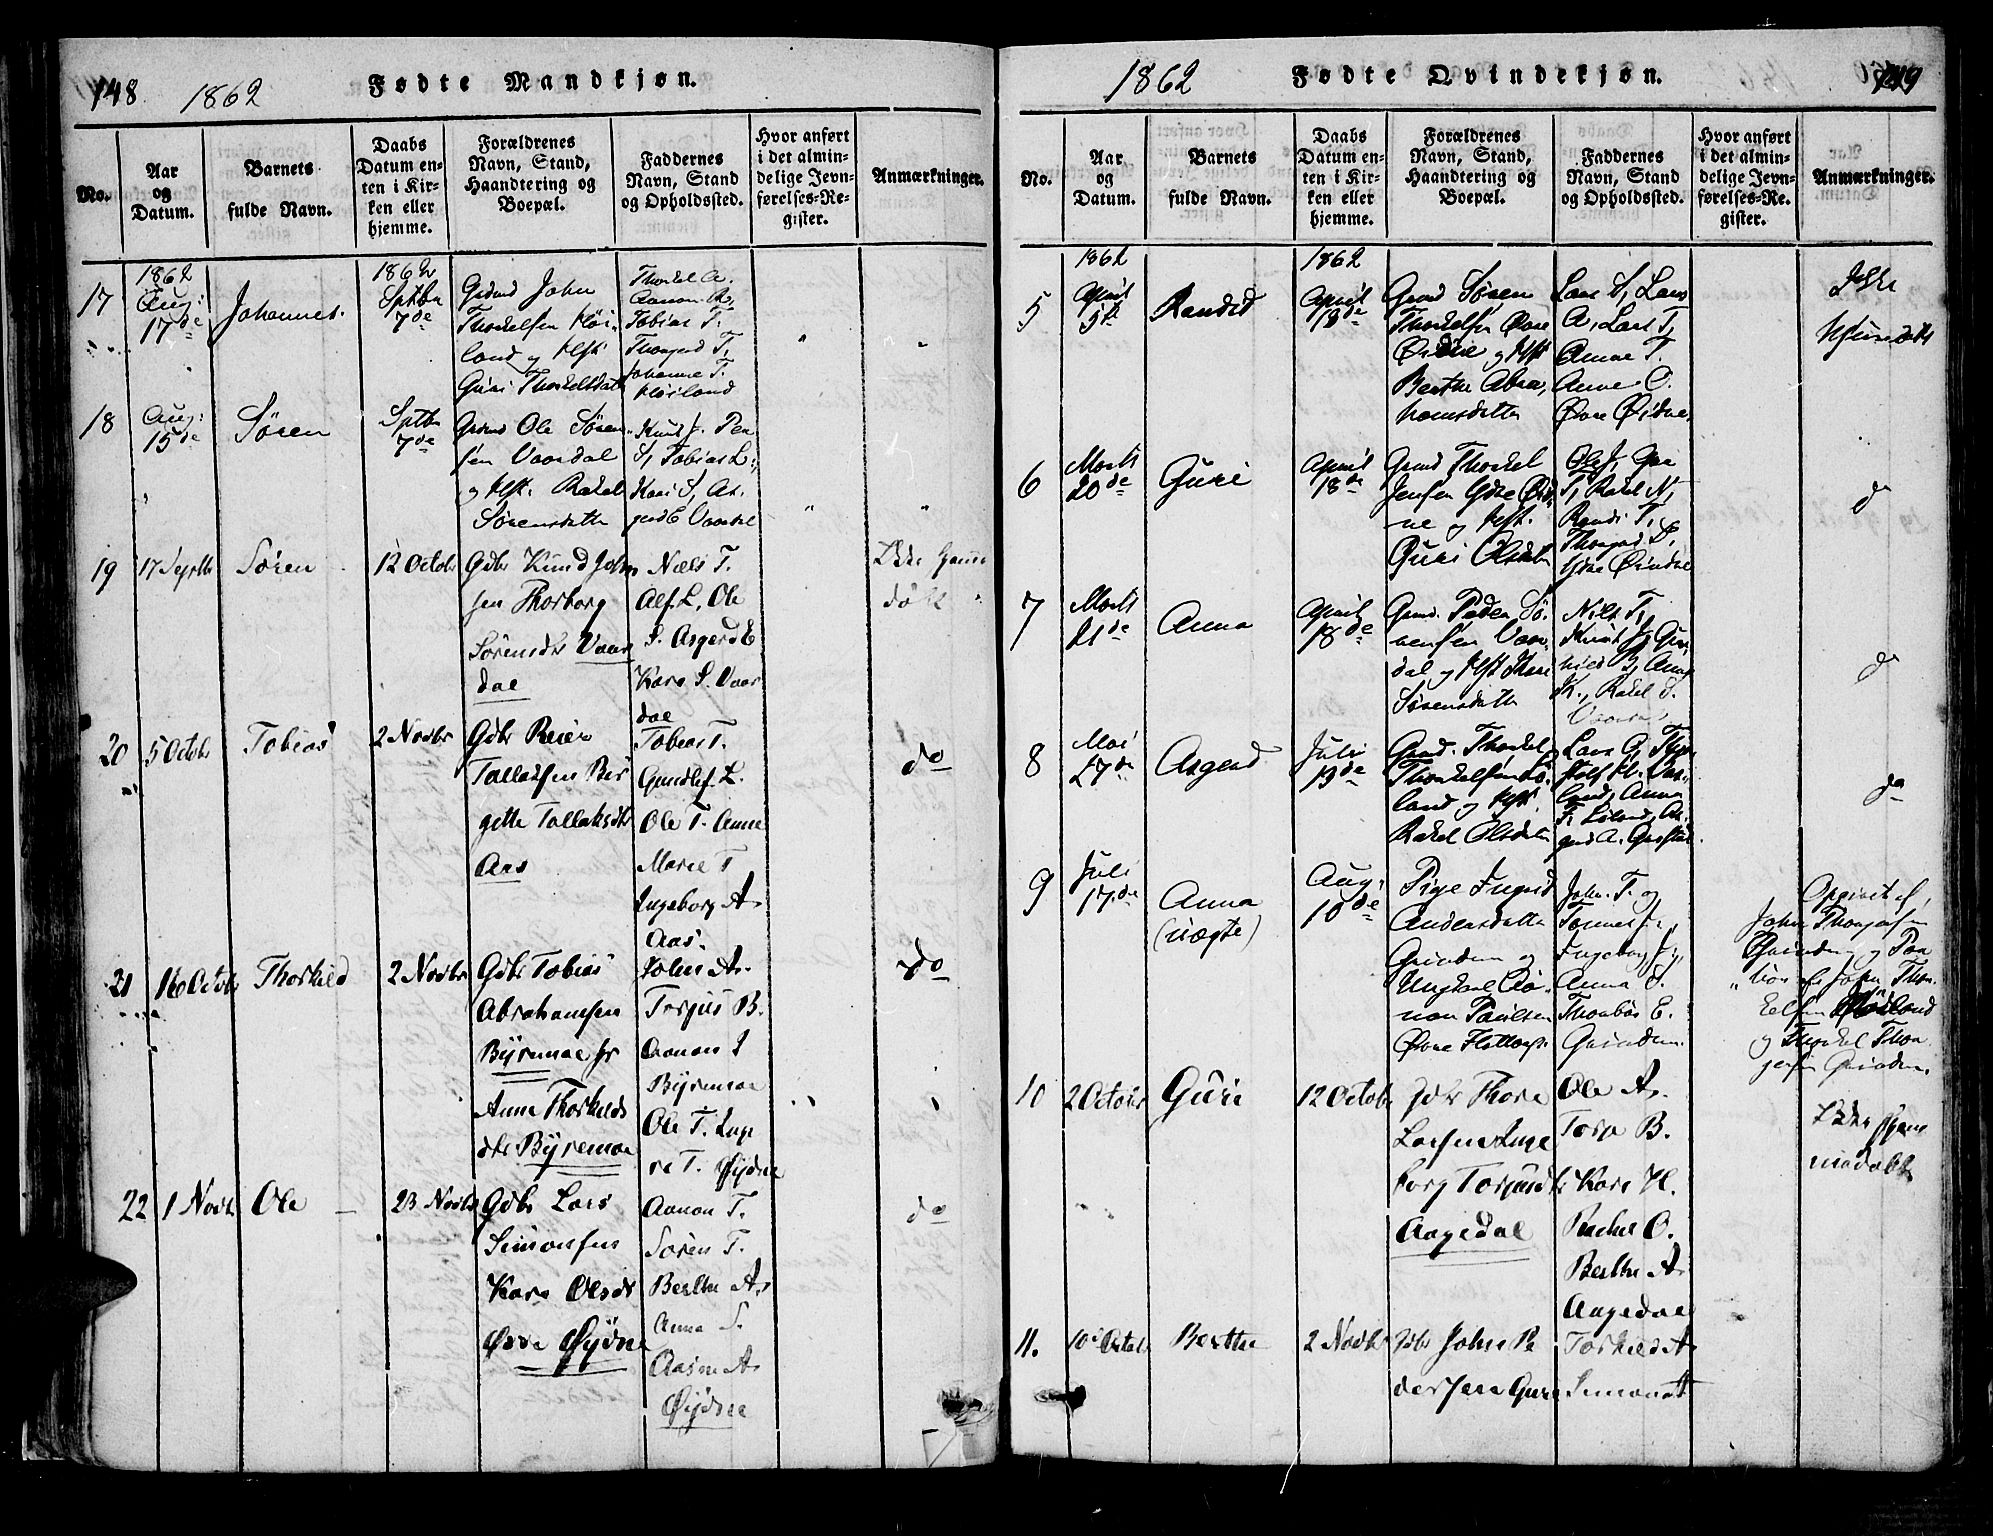 148 1862 Fødte Mandkjøn.
No.
Aar
og
Datum.
Barnets
fulde Navn.
Daabs
Datum en-
ten i Kir-
ken eller
hjemme.
Forældrenes
Navn, Stand,
Haandtering og
Boepæl.
Faddernes
Navn, Stand
og Opholdssted.
Hvor anført
i det almin-
delige Jevn-
førelses-Re-
gister.
Anmærkninger.
17
1862
Aug:
17de
Johannes.
1862
Sptbr
7de
Grdmd John
Thorkelsen Høi-
land og Hst
Guri Thorkelsdat
Thorkel A.
Aanon R,
Tobias T,
Thorgerd T,
Johanne T.
Høiland
18
Aug:
15de
Søren
Sptbr
7de
Grdmd Ole Søren-
sen Vaardal
og Hst. Rakel
Sørensdatter
Knud J. Peer
S, Tobias L:,
Kari S, As-
gerd E Vaardal
19
17 Septbr
Søren
12 Octobr
Gdbr Knud John
sen Thorborg
Sørensdtr Vaar
dal
Niels T.
Alf. L, Ole
S. Asgerd E
Karo S. Vaar
dal
Ikke
20
5 Octobr
Tobias
2 Novbr
Gdbr Reier
Tallaksen Bir
gitte Tallaksdtr
Aas
Tobias T.
Gundlef. L.
Ole T. Anne
Marie T
Ingeborg A.
Aas.
do
21
16 Octobr
Thorkild
2 Novbr
Gdbr Tobias
Abrahamsen
Byremoe
Anne Thorkilds
dtr Byremoe
John A.
Torjus B.
Aanon J
Byremoe
Ole T. Inge
re T. Øydne
do
22
1 Novbr
Ole
23 Novbr
Gdbr Lars
Simonsen
Karo Olsdtr
Øvre Øydne
Aanon T.
Søren T.
Berthe A.
Anna S.
Aasne A.
Øydne
do
1862 Fødte Qvindekjøn. 149
No.
Aar
og
Datum.
Barnets
fulde Navn.
Daabs
Datum en-
ten i Kir-
ken eller
hjemme.
Forældrenes
Navn, Stand,
Haandtering og
Boepæl.
Faddernes
Navn, Stand
og Opholdssted.
Hvor anført
i det almin-
delige Jevn-
førelses-Re-
gister.
Anmærkninger.
5
1862
April
5te
Randid
1862
April
18de
Grmd Søren
Thorkelsen Øvre
Øidne og Hst
Berthe Abra,
hamsdatter
Lars S, Lars
A, Lars T,
Anne T.
Anne O.
Øvre Øidne
Ikke
6
Marts
20de
Guri
April
18de
Grmd Thorkel
Jensen Ydre Øid-
ne og Hst.
Guri Olsdatter
Ole J, Guri
T, Rakel N,
Randi T,
Thorgerd D,
Ydre Øidne
do
7
Marts
21de
Anna
April
18de
Grmd. Peder Sø-
rensen Vaar-
dal og Hst
Sørensdatter
Niels T,
Knud J, Gun-
hild J, Anne
K., Rakel S.
Vaardal
do
8
Mai
27de
Asgerd
Juli
13de
Grmd. Thorkel
Thorkelsen Lø-
land og Hst.
Rakel Olsdatter
Lars G,
land, Anna
T. Løland, As-
gerd A.
do
9
Juli
17de
Anna
(uægte)
Aug:
10de
Pige Ingerid
Andersdatter
Grinden og
Ungkarl Aa-
non Paulsen
Øvre Flottorp.
John T. og
Tønnes J.,
Ingeborg J.,
Anna S.
Thorbør E.
Grinden.
Opgivet af,
John Thorgersen
Grinden og Paa
hør af John Thor-
kelsen Høiland
og Thorkel Thor
gersen Grinden.
10
2 Octobr
Guri
12 Octobr
Gdbr Thore
Larsen Inge
borg Torjusdtr
Aagedal
Ole A.
Torje B.
Karo H.
Rachel O.
Berthe A.
Aagedal
Ikke Hjem
medøbt
11.
10 Octobr
Berthe
2 Novbr
Gdbr John Pe
dersen Guri
Torkild A
Simon A